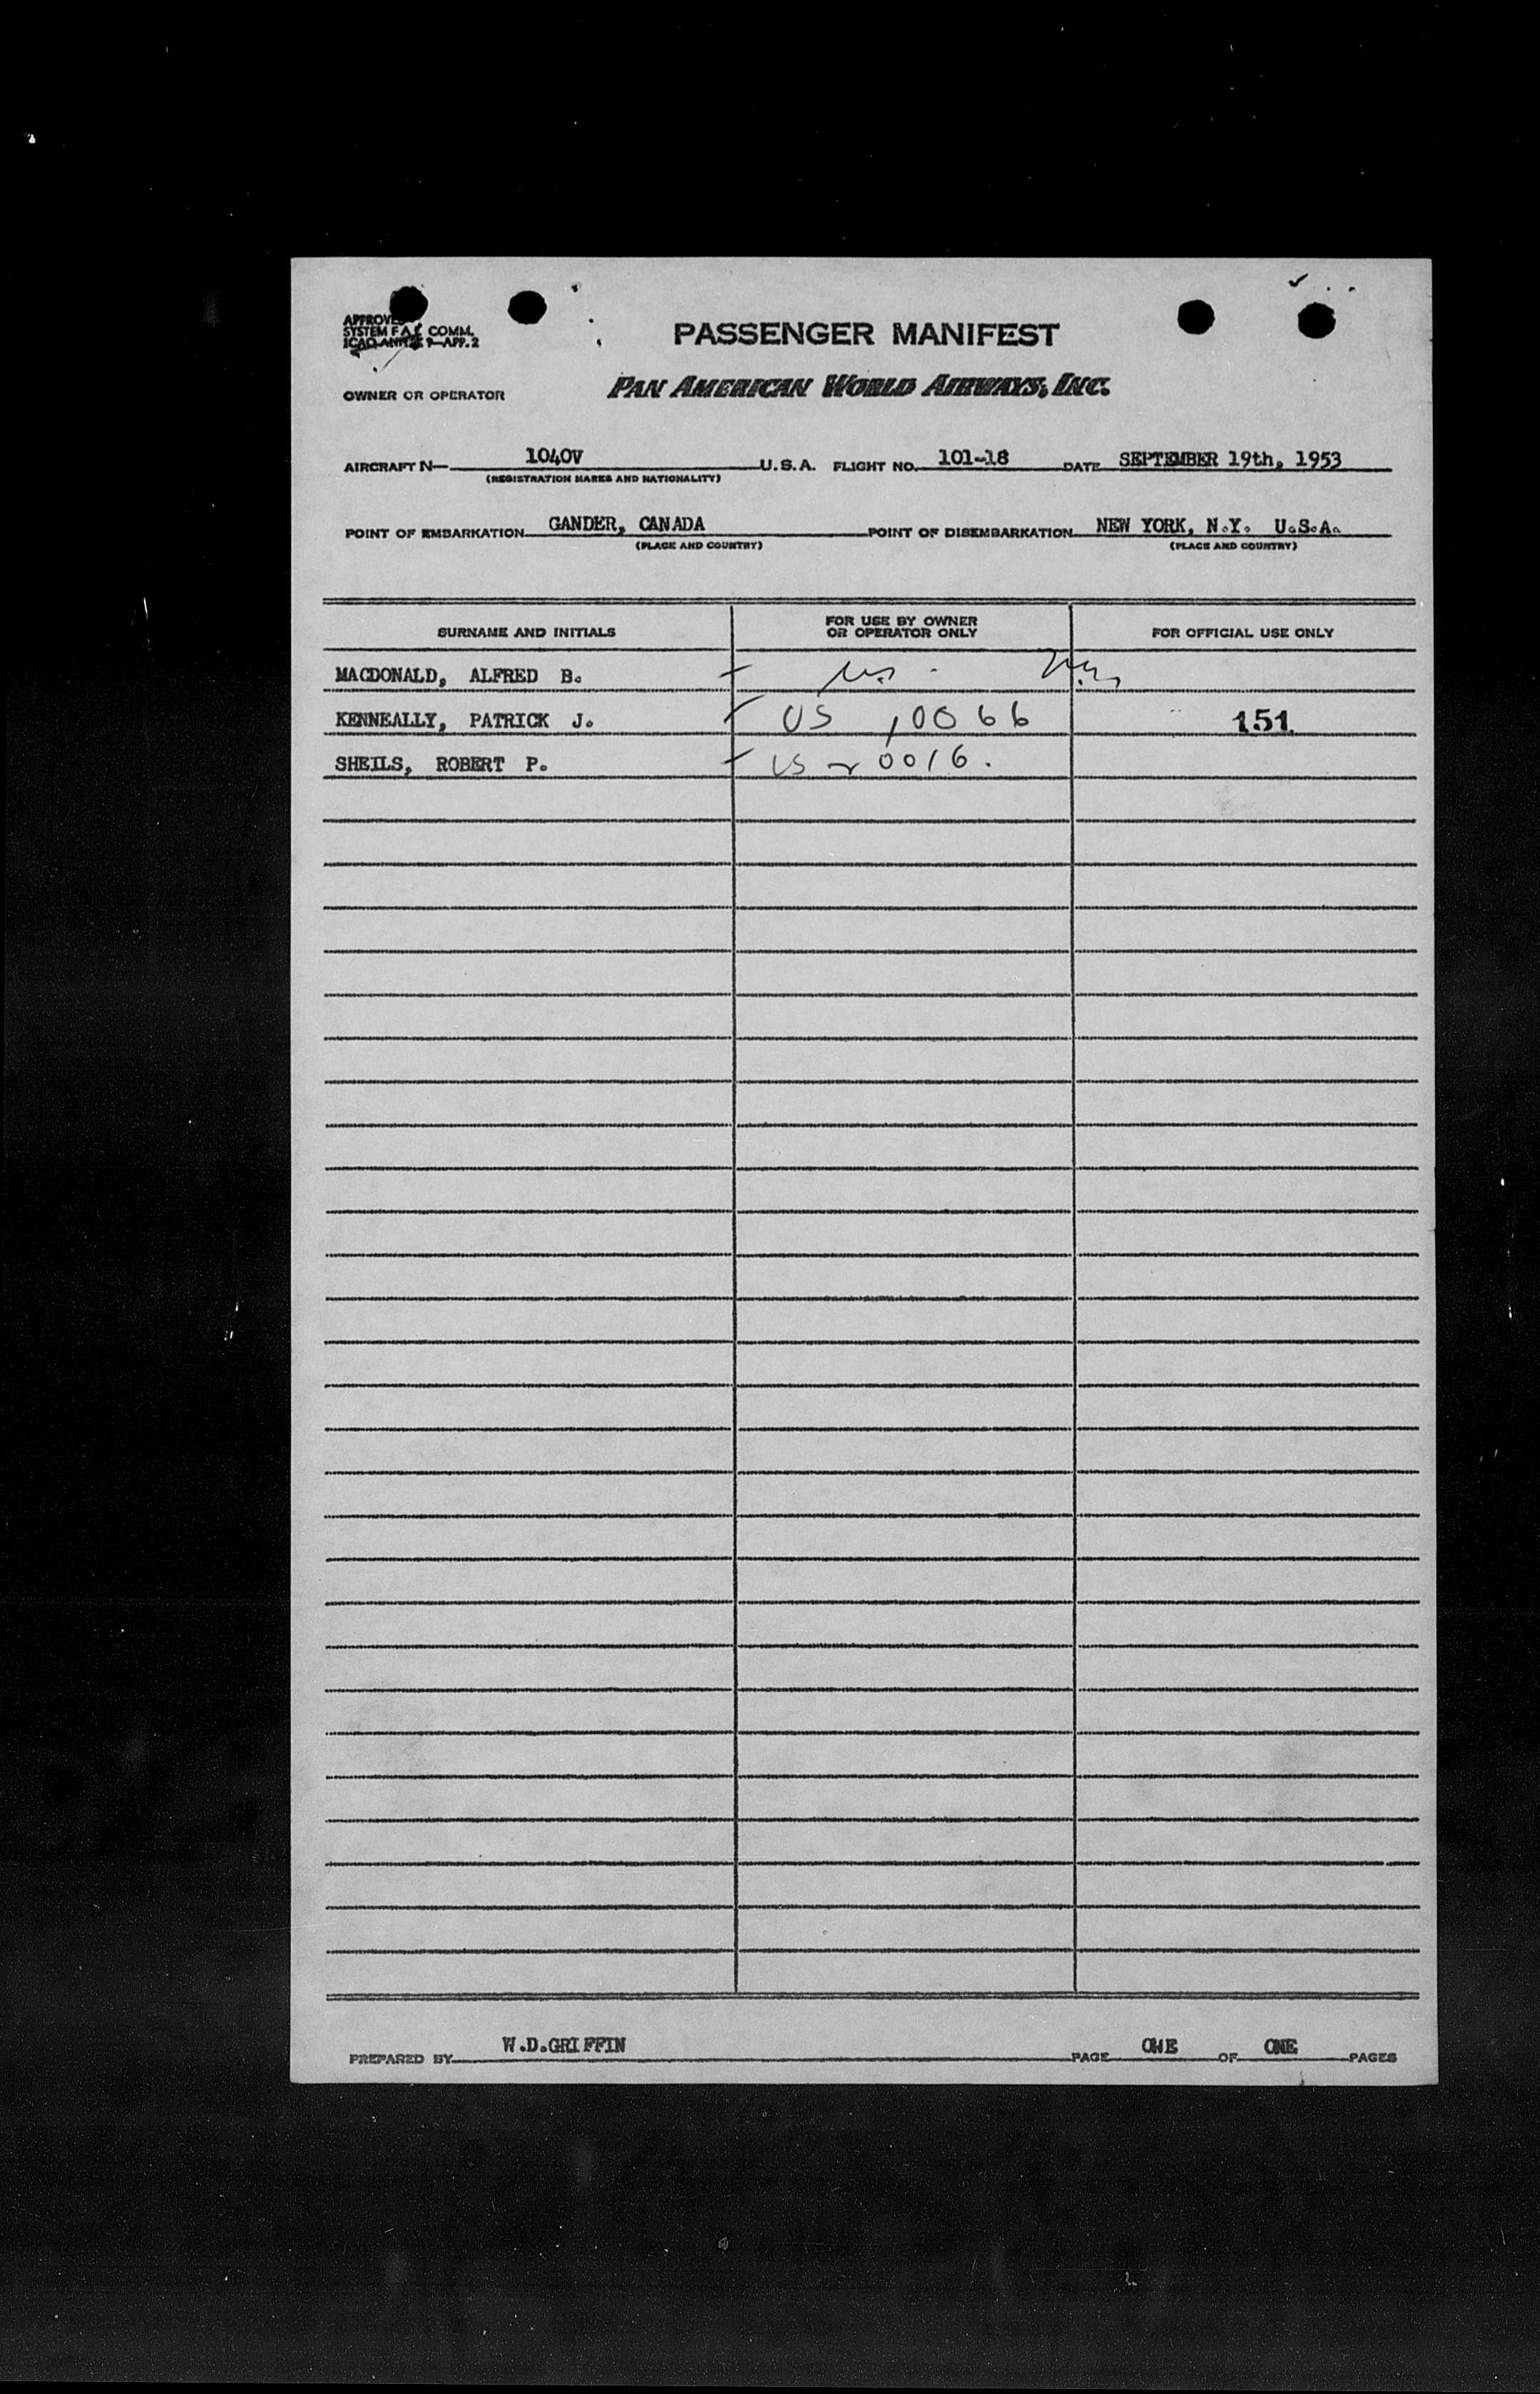 PASSENGER MANIFEST
SYSTEM F.A.L. COMM.
ICAO ANNEX 9—APP. 2
OWNER OR OPERATOR PAN AMERICAN WORLD AIRWAYS, INC.
AIRCRAFT N— 1040V U.S.A. FLIGHT NO. 101-18 DATE SEPTEMBER 19th, 1953
(REGISTRATION MARKS AND NATIONALITY)
POINT OF EMBARKATION GANDER, CANADA POINT OF DISEMBARKATION NEW YORK, N.Y. U.S.A.
(PLACE AND COUNTRY) (PLACE AND COUNTRY)
SURNAME AND INITIALS FOR USE BY OWNER OR OPERATOR ONLY FOR OFFICIAL USE ONLY
MACDONALD, ALFRED B.
KENNEALLY, PATRICK J. US 10066 151
SHEILS, ROBERT P. US 0016.
PREPARED BY W.D.GRIFFIN PAGE ONE OF ONE PAGES